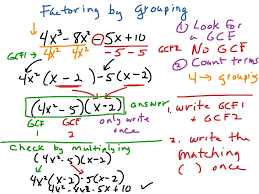 Factoring by Grouping
4x³ - 8x² - 5x + 10
GCF1 → 4x² 4x² -5 -5 GCF2
4x² (x - 2) - 5 (x - 2)
(4x² - 5)(x - 2) answer
GCF 1 GCF 2 only write once
Check by multiplying
(4x² - 5)(x - 2)
4x²(x - 2) - 5(x - 2)
4x³ - 8x² - 5x + 10 ✓
① Look for a GCF
No GCF
② Count terms
4 → grouping
1. write GCF1 + GCF2
2. write the matching ( ) once